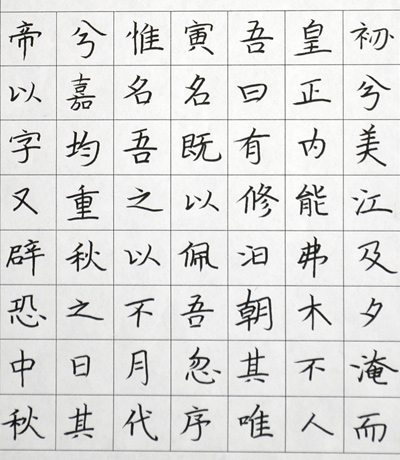 帝兮惟寅吾皇初
以嘉名名曰正兮
字均吾既有内美
又重之以修能江
辟秋以佩汩弗及
恐之不吾朝木夕
中日月忽其不淹
秋其代序唯人而